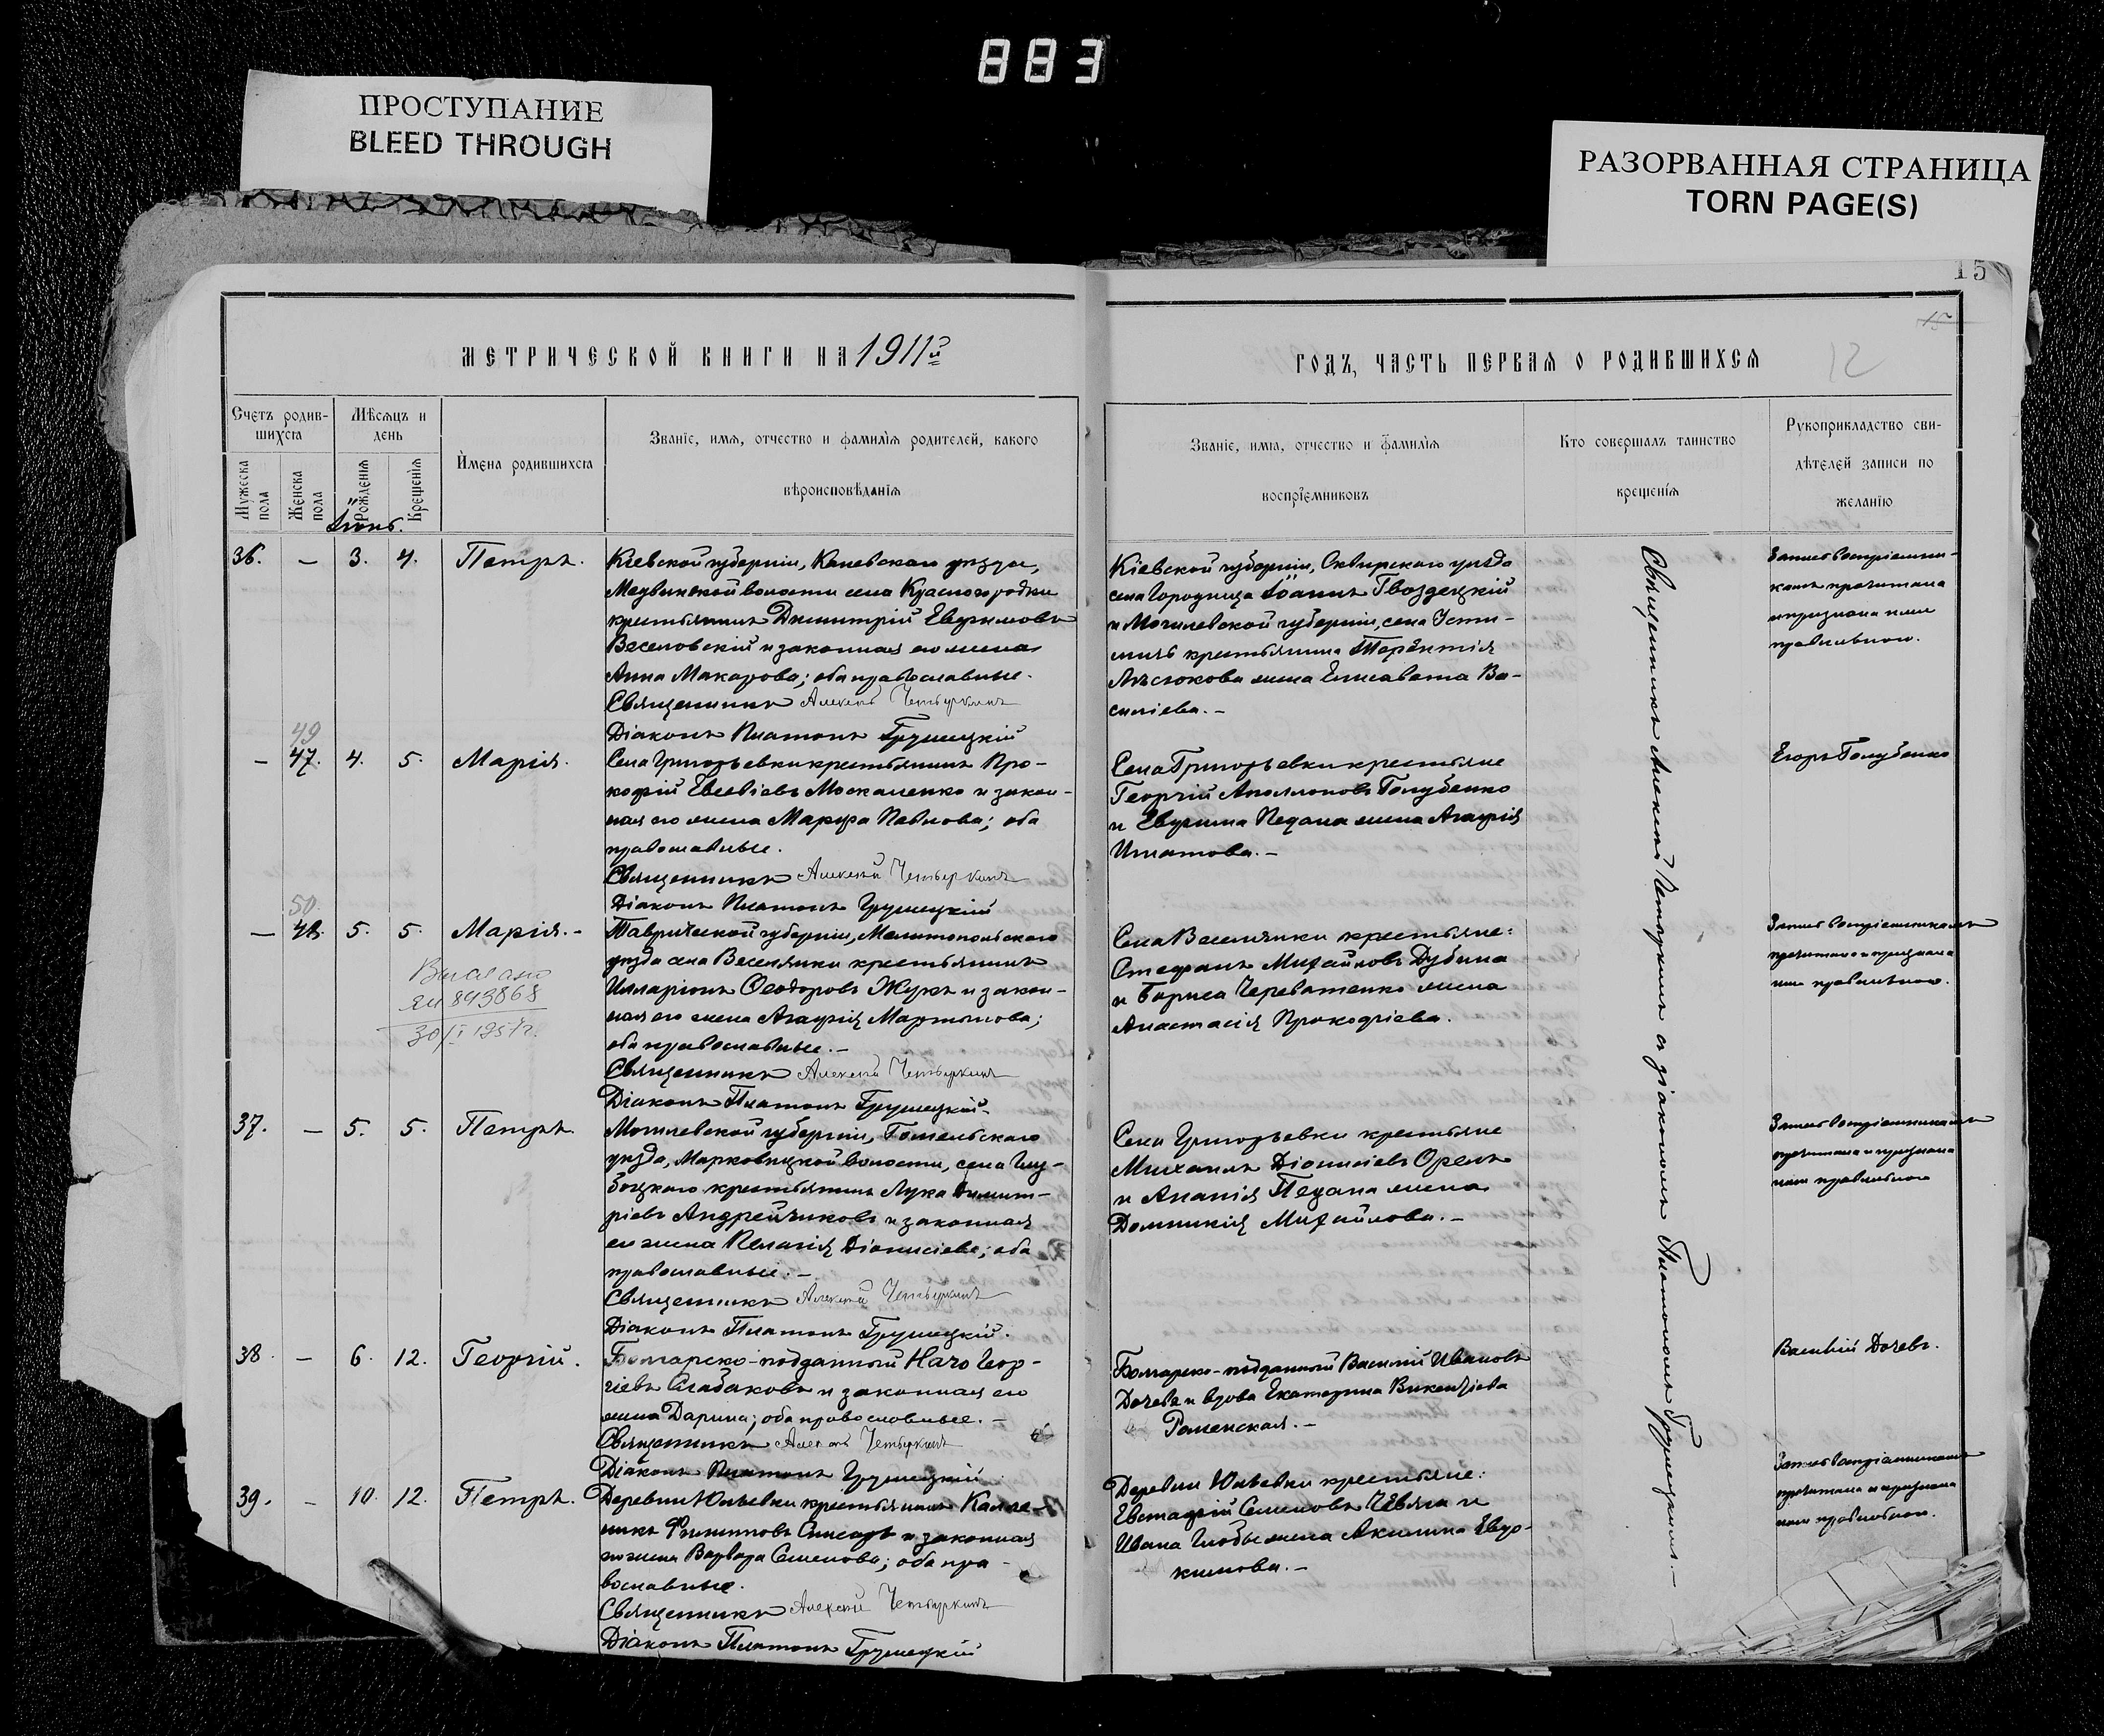 883
ПРОСТУПАНИЕ
BLEED THROUGH
РАЗОРВАННАЯ СТРАНИЦА
TORN PAGE(S)
15
15
12
МЕТРИЧЕСКОЙ КНИГИ НА 1911й
ГОДЪ, ЧАСТЬ ПЕРВАЯ О РОДИВШИХСЯ
Счетъ родив-
шихся
Мѣсяцъ и
день
Имена родившихся
Званіе, имя, отчество и фамилія родителей, какого
вѣроисповѣданія
Мужеска
пола
Женска
пола
Рожденія
Крещенія
Званіе, имя, отчество и фамилія
воспріемниковъ
Кто совершалъ таинство
крещенія
Рукоприкладство сви-
дѣтелей записи по
желанію
Іюнь.
36. — 3. 4. Петръ.
Кіевской губерніи, Каневскаго уѣзда,
Медвинской волости села Красногородки
крестьянинъ Димитрій Евфимовъ
Веселовскій и законная его жена
Анна Макарова; оба православные.
Священникъ Алексѣй Четыркинъ
Діаконъ Платонъ Грушецкій
Кіевской губерніи, Сквирскаго уѣзда
села Городища Іоаннъ Гвоздецкій
и Могилевской губерніи, села Усти-
крестьянина Терентія
жена Елисавета Ва-
силіева.—
Запись воспріемни-
камъ прочитана
и признана ими
правильною.
49
— 47. 4. 5. Марія.
Села Григорьевки крестьянинъ Про-
кофій Евсевіевъ Москаленко и закон-
ная его жена Марфа Павлова; оба
православные.
Священникъ Алексѣй Четыркинъ
Діаконъ Платонъ Грушецкій
Села Григорьевки крестьяне
Георгій Аполлоновъ Голубенко
и Евфима Педана жена Агафія
Игнатова.—
Егоръ Голубенко
50.
— 48. 5. 5. Марія.-
Таврической губерніи, Мелитопольскаго
уѣзда села Веселянки крестьянинъ
Илларіонъ Ѳеодоровъ Жукъ и закон-
ная его жена Агафія Мартынова;
оба православные.—
Священникъ Алексѣй Четыркинъ
Діаконъ Платонъ Грушецкій.
Выслано
ЯИ 893868
30/I 1957г.
Села Веселянки крестьяне:
Стефанъ Михайловъ Дубина
и Бориса Череватенко жена
Анастасія Прокофіева.
Запись воспріемникамъ
прочитана и признана
ими правильною.
37. — 5. 5. Петръ.
Могилевской губерніи, Гомельскаго
уѣзда, Марковицкой волости, села Глу-
боцкаго крестьянинъ Лука Димит-
ріевъ Андрейчиковъ и законная
его жена Пелагія Діонисіева; оба
православные.—
Священникъ Алексѣй Четыркинъ
Діаконъ Платонъ Грушецкій.
Села Григорьевки крестьяне
Михаилъ Діонисіевъ Орелъ
и Ананія Педана жена
Домникія Михайлова.—
Запись воспріемникамъ
прочитана и признана
ими правильною
38. — 6. 12. Георгій.
Болгарско-подданный Начо Геор-
гіевъ Слабаковъ и законная его
жена Дарина; оба православные.—
Священникъ Алексѣй Четыркинъ
Діаконъ Платонъ Грушецкій.
Болгарско-подданный Василій Ивановъ
Дочевъ и вдова Екатерина Викентіева
Раменская.—
Василій Дочевъ.
39. — 10. 12. Петръ.
Деревни Юльевки крестьянинъ Калле-
никъ Филипповъ Слисарь и законная
его жена Варвара Семенова; оба пра-
вославные.
Священникъ Алексѣй Четыркинъ
Діаконъ Платонъ Грушецкій
Деревни Юльевки крестьяне:
Евстафій Семеновъ Чевяга и
Ивана Глобы жена Акилина Евдо-
кимова.—
Запись воспріемникамъ
прочитана и признана
ими правильною.
Священникъ Алексѣй Четыркинъ съ діакономъ Платономъ Грушецкимъ.—